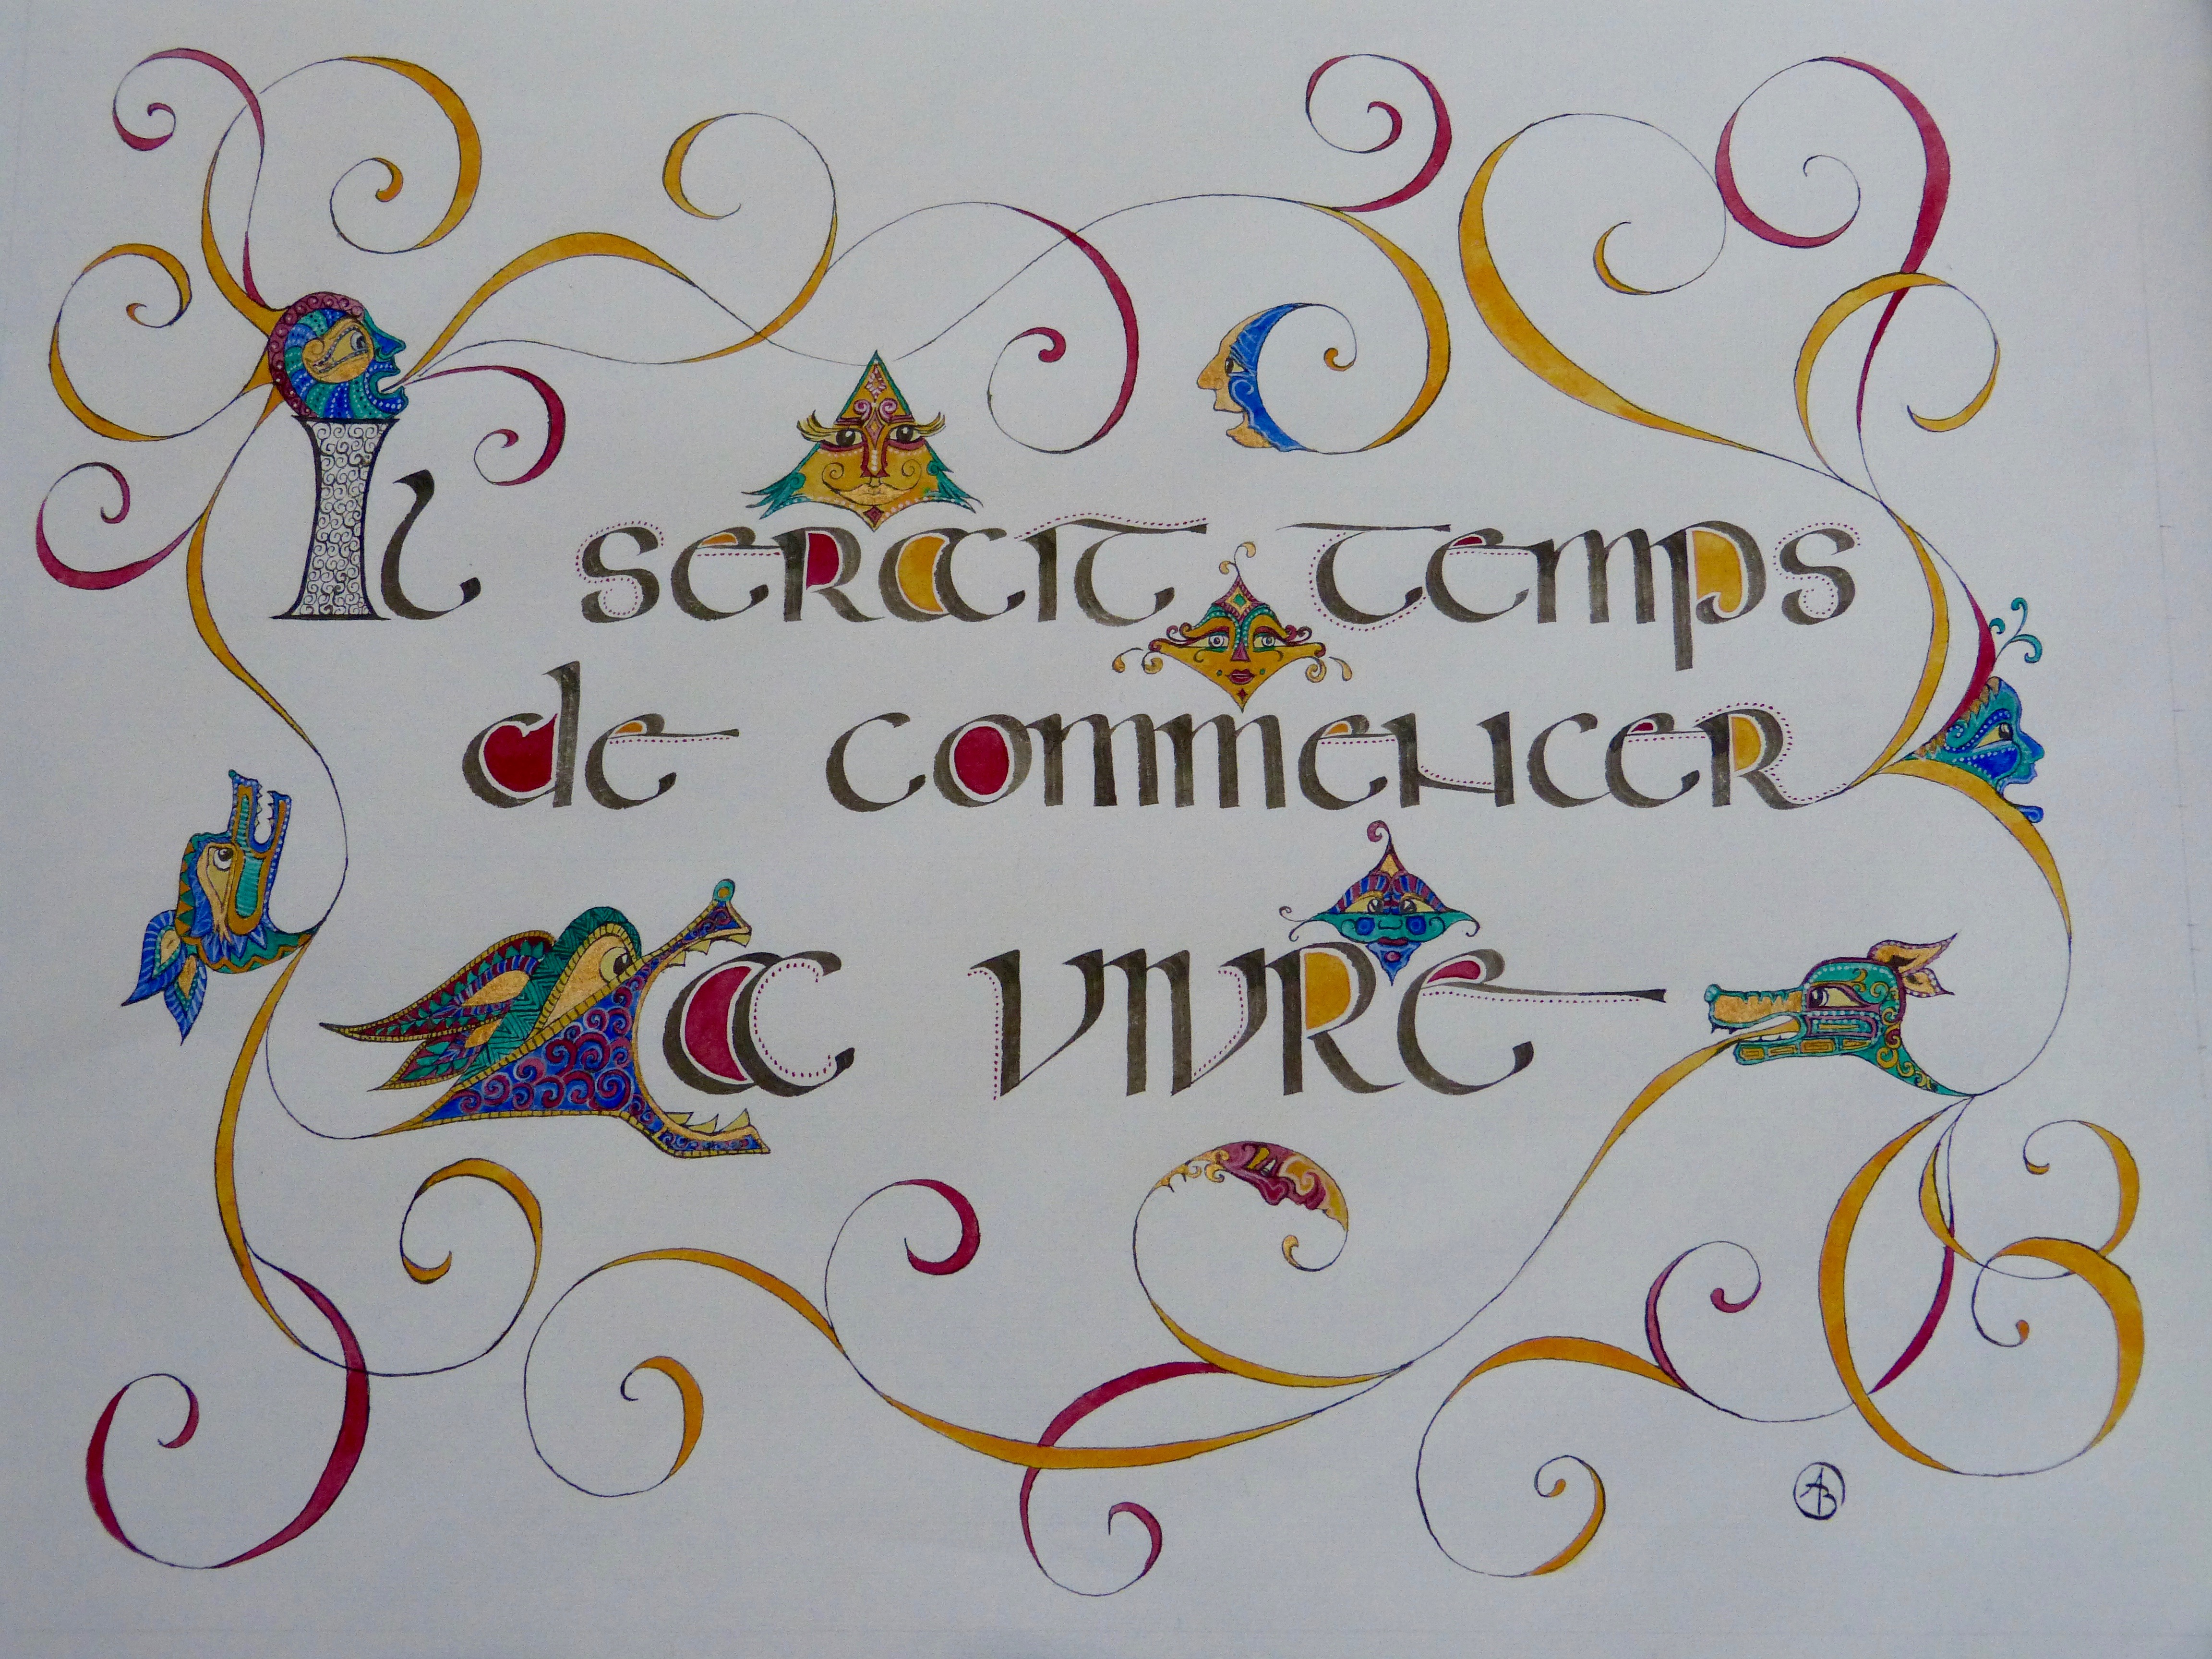 Il serait temps
de commencer
a vivre
AB